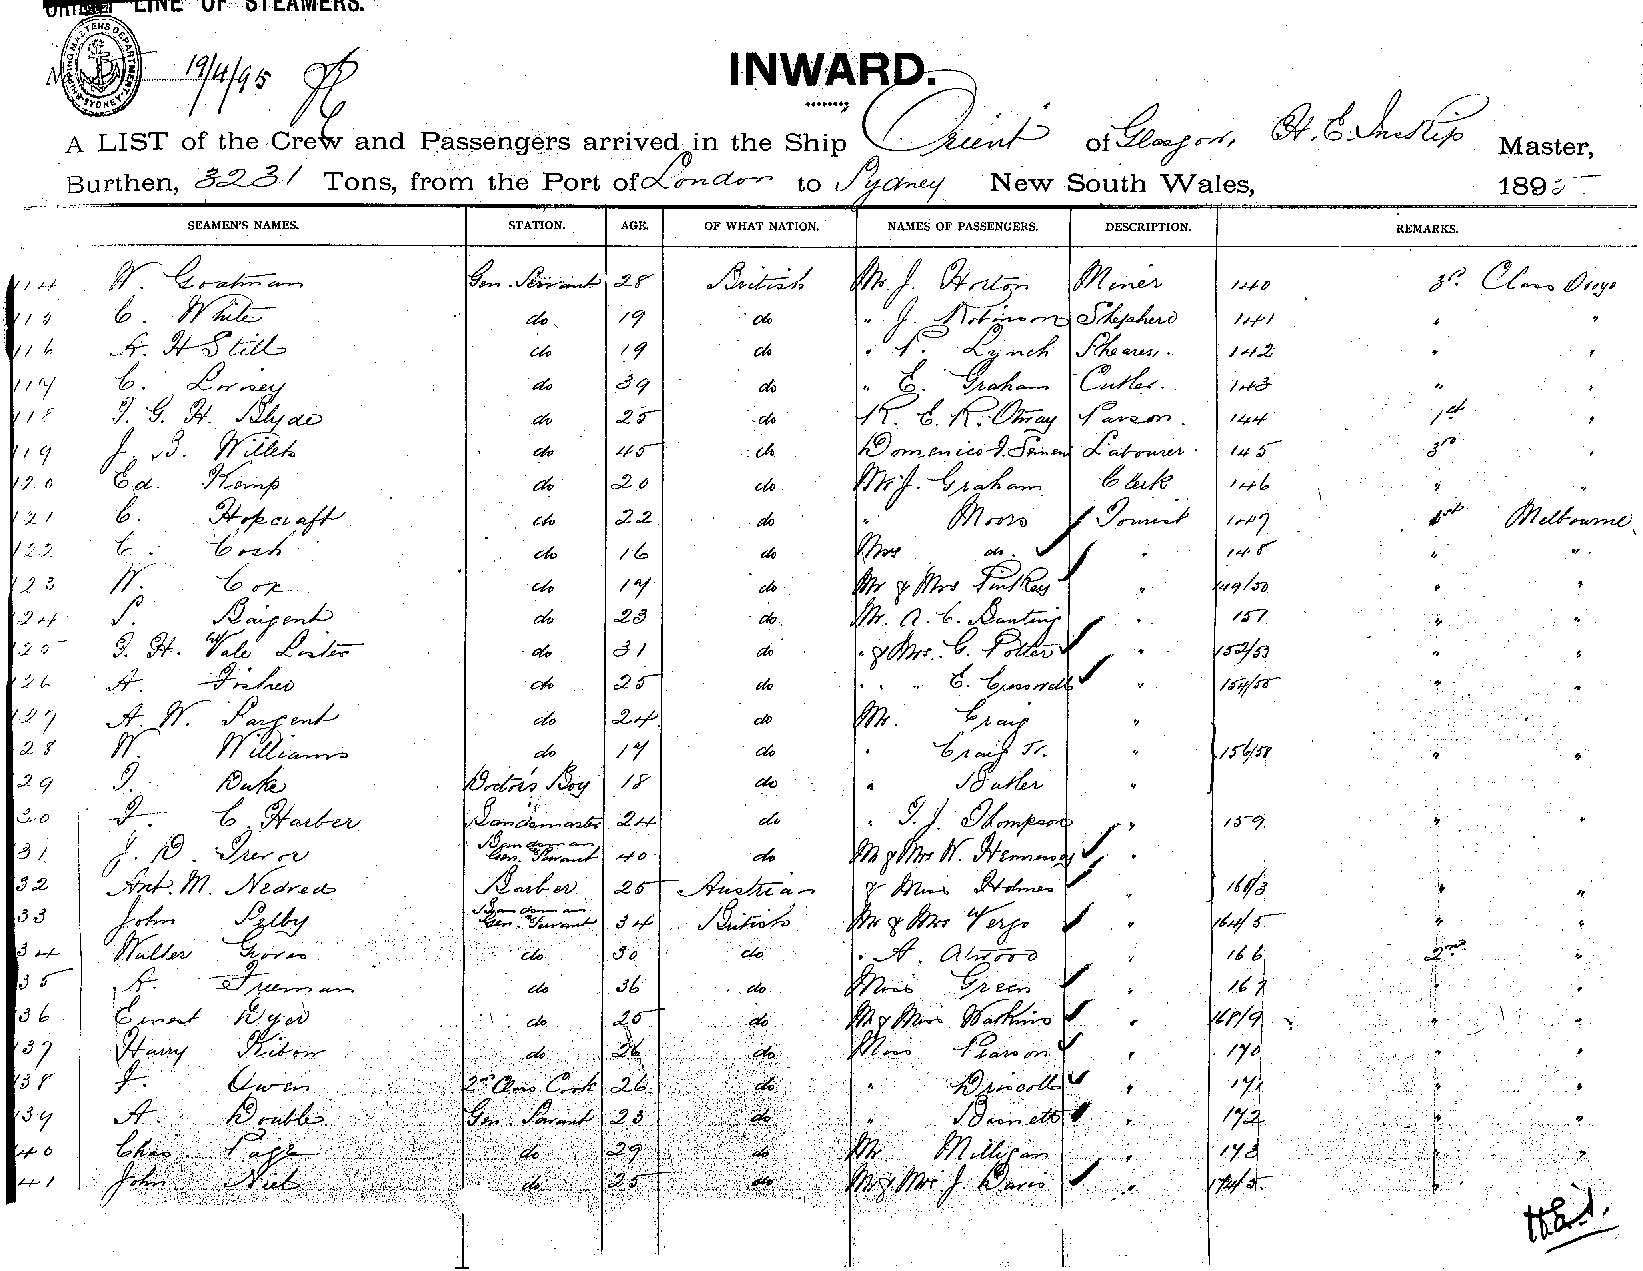 LINE OF STEAMERS.
19/4/95
INWARD.
A LIST of the Crew and Passengers arrived in the Ship Orient of Glasgow, H. E. Inskip Master,
Burthen, 3231 Tons, from the Port of London to Sydney New South Wales, 1895
SEAMEN'S NAMES. STATION. AGE. OF WHAT NATION. NAMES OF PASSENGERS. DESCRIPTION. REMARKS.
114 W. Goatman Gen. Servant 28 British Mr. J. Horton Miner 140 3rd Class
115 C. White do 19 do " J. Robinson Shepherd 141 " "
116 A. H Still do 19 do " P. Lynch Shearer. 142 " "
117 C. do 39 do " E. Graham Cutler. 143 " "
118 F. G. H. Blyde do 25 do R. E. R. Otway Parson. 144 1st "
119 J. B. Willets do 45 do Domenico Labourer 145 3rd "
120 Ed. Kemp do 20 do Mr J. Graham Clerk 146 " "
121 C. Hopcraft do 22 do " Moors Tourist 147 1st Melbourne
122 C. Cosh do 16 do Mrs do. " 148 " "
123 W. Cox do 17 do Mr & Mrs " 149/50 " "
124 P. Baigent do 23 do Mr. A. C. Bunting " 151 " "
125 F. H. Vale Lister do 31 do " & Mrs. C. Potter " 152/53 " "
126 A. Fisher do 25 do " " " E. Cresswell " 154/55 " "
127 A. W. Sargent do 24 do Mr. Craig "
128 W. Williams do 17 do " Craig Jr. " 156/58 " "
129 F. Duke Doctor's Boy 18 do " Butler "
130 F. C. Harber Bandmaster 24 do " F. J. Thompson " 159 " "
131 J. D. Trevor Bandsman Gen. Servant 40 do Mr & Mrs W. Hennessy "
132 Ant. M. Nedved Barber 25 Austrian & Miss Holmes " 160/3 " "
133 John Selby Bandsman Gen. Servant 34 British Mr & Mrs Vergo " 164/5 " "
134 Walter Groves do 30 do " A. Atwood " 166 2nd "
135 A. Freeman do 36 do Miss Green " 167 " "
136 Ernest Dyer do 25 do Mr & Miss Watkins " 168/9 " "
137 Harry Ribon do 26 do Miss Pearson " 170 " "
138 F. Owen 2nd Class Cook 26 do " Driscoll " 171 " "
139 A. Double Gen. Servant 23 do " Barnett " 172 " "
140 Chas. Page do 29 do Mr Milligan " 173 " "
141 John Niel do 25 do Mr & Mrs J Davis " 174/5 " "